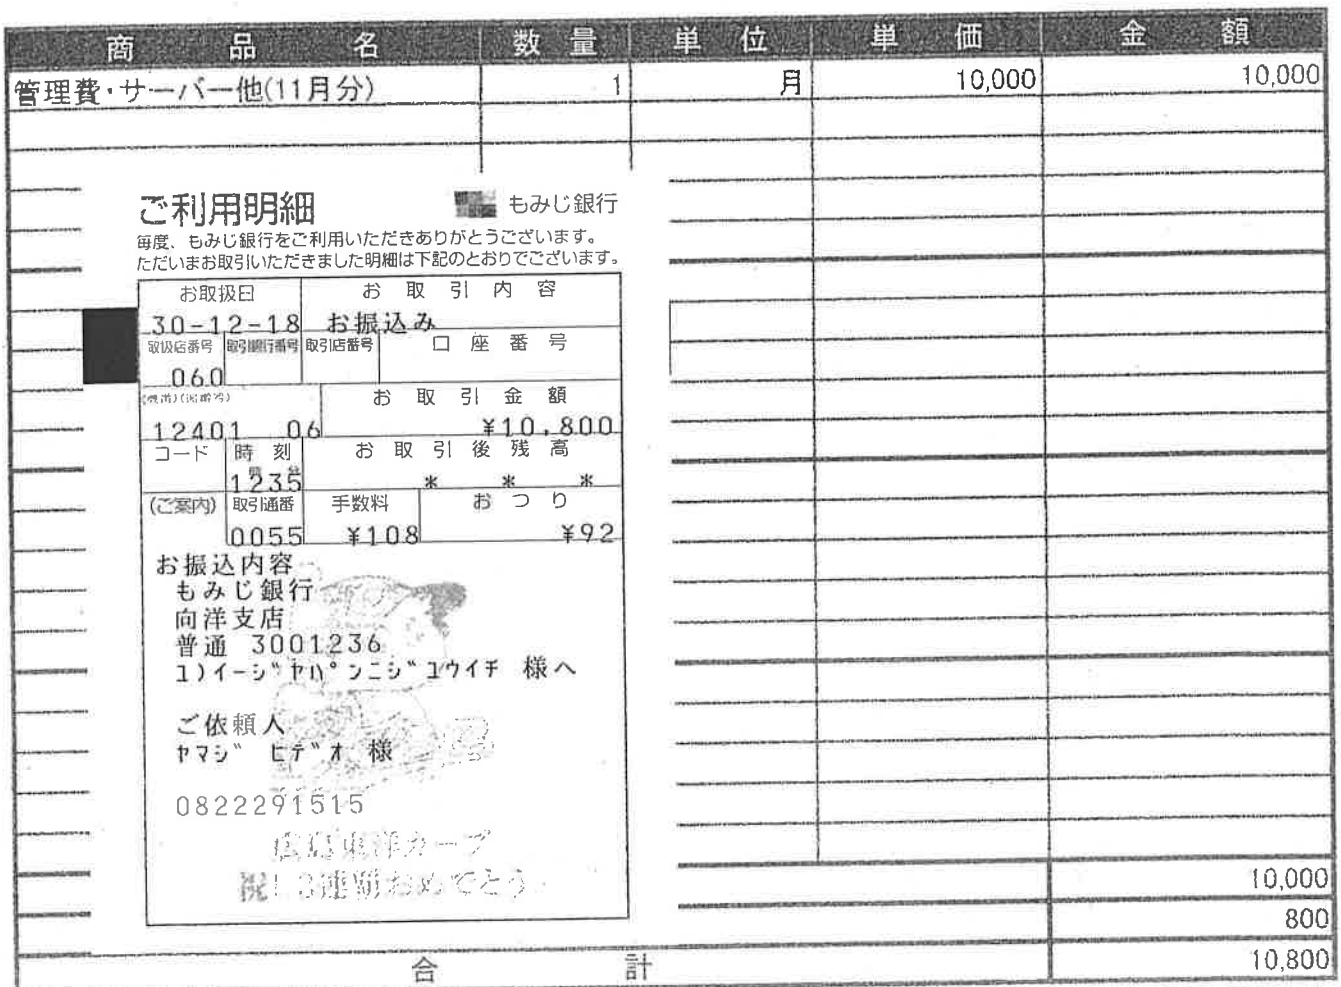 商品名 数量 単位 単価 金額
管理費・サーバー他(11月分) 1 月 10,000 10,000
ご利用明細 もみじ銀行
毎度、もみじ銀行をご利用いただきありがとうございます。
ただいまお取引いただきました明細は下記のとおりでございます。
お取扱日 お取引内容
30-12-18 お振込み
取扱店番号 取引銀行番号 取引店番号 口座番号
060
お取引金額
12401 06 ¥10,800
コード 時刻 お取引後残高
時 分
1235 * * *
(ご案内) 取引通番 手数料 おつり
0055 ¥108 ¥92
お振込内容
もみじ銀行
向洋支店
普通 3001236
ユ)イージヤパンニシジユウイチ 様へ
ご依頼人
ヤマジ ヒデオ 様
0822291515
広島東洋カープ
祝!3連覇おめでとう
10,000
800
合計 10,800